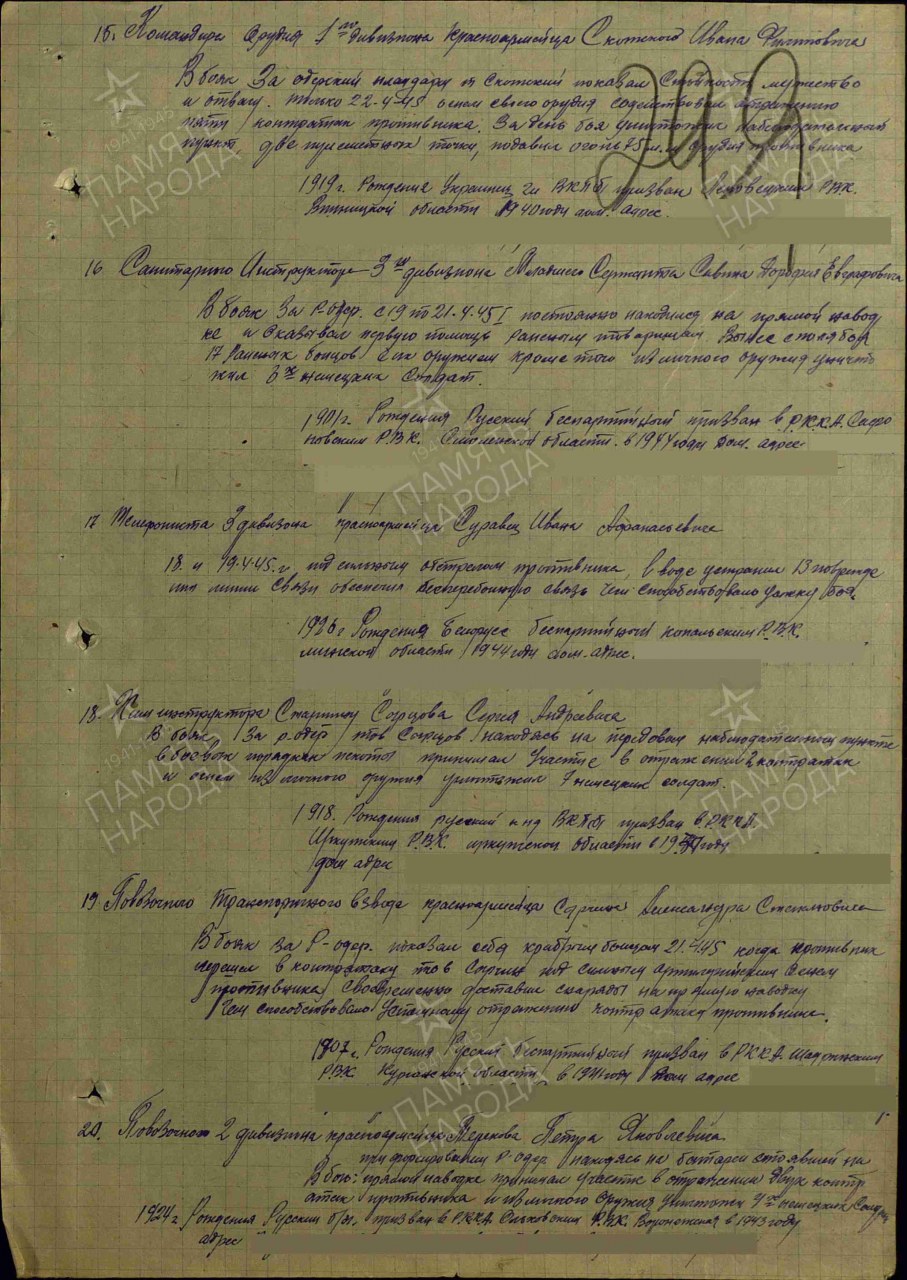 15. Командира Орудия 1го дивизиона Красноармейца Скотского Ивана
В боях За одерский плацдарм т Скотский показал Стойкость мужество
и отвагу. только 22-4-45 огнем своего орудия содействовал отражению
пяти контратак противника. За день боя уничтожил наблюдательный
пункт, две пулеметных точки, подавил огонь 75 м.м. орудия противника
1919 г. Рождения Украинец чл ВКП(б) призван РВК.
Винницкой области 1940 году дом. адрес.
16 Санитарного Инструктора 3го дивизиона Младшего Сержанта Савина Дорофея Евграфовича
В боях За р-Одер. с 19 по 21-4-45 г постоянно находился на прямой навод
ке и Оказывал первую помощь раненым товарищам. Вынес с поля боя
17 Раненых бойцов с их оружием кроме того из личного оружия уничто
жил 3х немецких Солдат.
1901 г. Рождения Русский беспартийный призван в Р.К.К.А. Сафо
новским Р.В.К. Смоленской области. в 1944 году Дом. адрес
17 Телефониста 3 дивизона красноармейца Суравец Ивана Афанасьевича
18. и 19.4.45. г. под сильным обстрелом противника, в воде устранил 13 поврежде
ний линии Связи обеспечил бесперебойную связь Чем Способствовал боя.
1926 г Рождения Белорус беспартийный копыльским Р.В.К.
области 1944 году дом. адрес.
18. Хим инструктора Старшину Согрцова Сергея Андреевича
В боях За р. Одер тов Согрцов находясь на передовом наблюдательном пункте
в боевых порядках пехоты принимал Участие в отражении 2 контратак
и огнем из личного оружия уничтожил 7 немецких солдат.
1918. Рождения русский кнд ВКП(б) призван в РККА.
Иркутским Р.В.К. иркутской области в году
дом адрес
19 Повозочного транспортного взвода красноармейца Александра
В боях за Р-одер. показал себя храбрым бойцом 21-4-45 когда противник
перешел в контратаку тов под сильным артиллерийским Огнем
противника Своевременно доставил снаряды на прямую наводку
Чем способствовал Успешному отражению контр атаки противника.
1907 г. Рождения Русский беспартийный призван в РККА Шадринским
РВК Курганской области, в 1941 году Дом адрес
20. Повозочного 2 дивизиона красноармейца Петра Яковлевича.
при форсировании р-одер находясь на батареи стоявшей на
В бою: прямой наводке принимал участие в отражении двух контр
атак противника и из личного оружия уничтожил 4х немецких Солдат
1924 г. Рождения Русский б/п. призван в РККА РВК. Воронежской в 1943 году
адрес